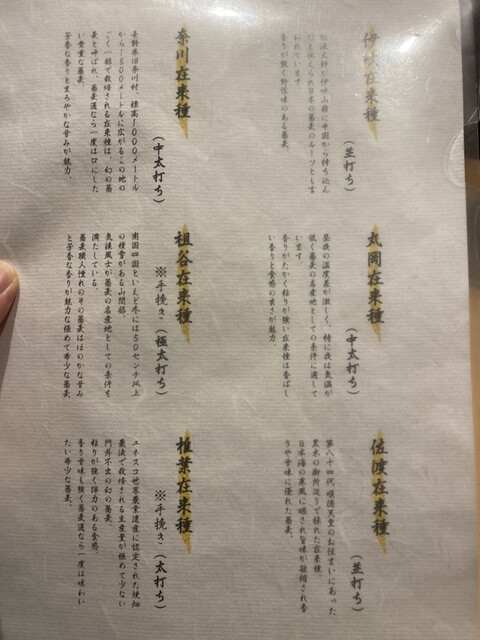 伊吹在来種
(並打ち)
弘法大師が伊吹山麓に中国から持ち込ん
だと伝えられ日本の蕎麦のルーツとしま
れています。
香りが強く野性味のある蕎麦。
奈川在来種
(中太打ち)
長野県旧奈川村、標高1000メートル
から1500メートルに広がるこの地の
ごく一部で栽培される在来種は、幻の蕎
麦と呼ばれ、蕎麦通なら一度は口にした
い貴重な蕎麦。
芳香な香りとまろやかな甘みが魅力。
丸岡在来種
(中太打ち)
昼夜の温度差が激しく、特に夜は気温が
低く蕎麦の名産地としての条件に適して
います。
香りがたかく粘りが強い在来種は香ばし
い香りと食感の良さが魅力。
祖谷在来種
※手挽き(極太打ち)
南国四国といえど冬には50センチ以上
の積雪がある山間部。
気候風土が蕎麦の名産地としての条件を
満たしている。
蕎麦職人憧れのその蕎麦はほのかな甘み
と芳香な香りが魅力な極めて希少な蕎麦。
佐渡在来種
(並打ち)
第八十四代 順徳天皇のお住まいにあった
黒木の御所辺りで採れた在来種。
日本海の寒風に曝され旨味が凝縮され香
りや甘味に優れた蕎麦。
椎葉在来種
※手挽き(太打ち)
ユネスコ世界農業遺産に認定された焼畑
農法で栽培される生産量が極めて少ない
門外不出の幻の蕎麦。
粘りが強く弾力のある食感。
香り甘味も強く蕎麦通なら一度は味わい
たい希少な蕎麦。